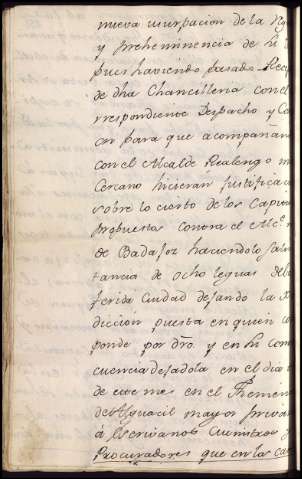 nueva usurpacion de la R
y preheminencia de su
pues haviendo pasado Rec
de dha Chancilleria con el
rrespondiente Despacho y Co
cor para que acompañan
con el Alcalde Realengo m
Cercano hicieran justifica
sobre lo cierto de los Capitu
propuestos contra el Alc.e m
de Badajoz haciendolo sali
tancia de ocho leguas de la
ferida Ciudad dejando la
diccion puesta en quien co
ponde por dro. y en su con
cuencia dejadola en el dia
de este mes en el Themien
de Alguacil mayor privan
à Escrivanos Ministros y
Procuradores que en las ca